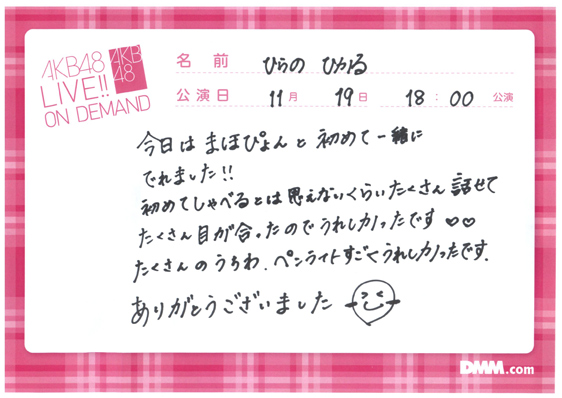 AKB48
LIVE!!
ON DEMAND
AKB
48
名前 ひらの ひかる
公演日 11月 19日 18:00 公演
今日は まほぴょん と 初めて 一緒に
でれました!!
初めてしゃべるとは思えないくらいたくさん 話せて
たくさん目が合ったのでうれしかったです♡♡
たくさんのうちわ、ペンライトすごくうれしかったです。
ありがとうございました
DMM.com